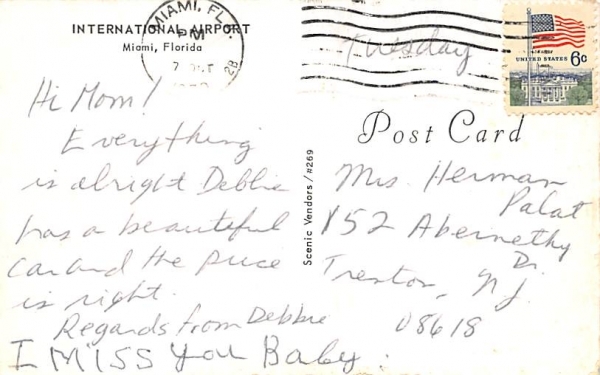 INTERNATIONAL AIRPORT
Miami, Florida
MIAMI, FLA.
PM
7
28
Tuesday
UNITED STATES 6c
Post Card
Hi Mom!
Everything
is alright Debbie
has a beautiful
car and the price
is right.
Regards from Debbie
I MISS you Baby.
Scenic Vendors/#269
Mrs. Herman
Palat
152 Abernethy
Dr.
Trenton, NJ.
08618